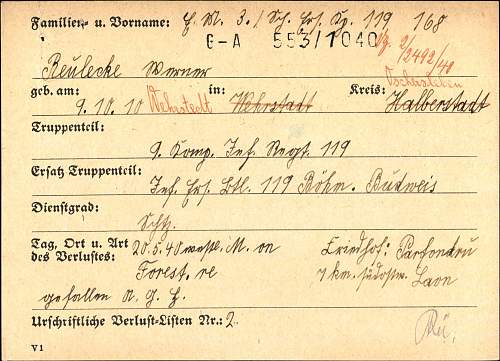 Familien- u. Vorname: E. M. 3./ Sch. Ers. Kp. 119 168
G-A 553/1040
2/2492/41
Reulecke Werner Oschersleben
geb. am: in: Kreis:
9.10.10 Wehrstedt Wehrstadt Halberstadt
Truppenteil:
9. Komp. Inf. Regt. 119
Ersatz Truppenteil:
Inf. Ers. Btl. 119 Böhm. Budweis
Dienstgrad:
Schtz.
Tag, Ort u. Art des Verlustes: 20.5.40 westl.
Friedhof: Parfondru
Forest.
7 km. südostw. Laon
gefallen A. G. H.
Urschriftliche Verlust-Listen Nr.: 2
V1